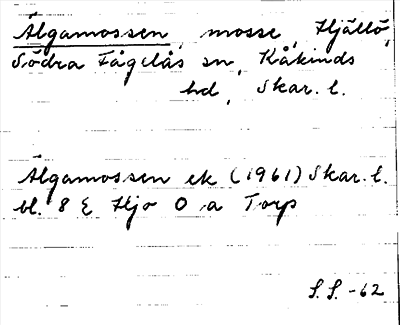 Älgamossen, mosse, Hjällö,
Södra Fågelås sn, Kåkinds
hd, Skar. l.
Älgamossen ek (1961) Skar. l.
bl. 8 E Hjo O a Torp
S.S. -62